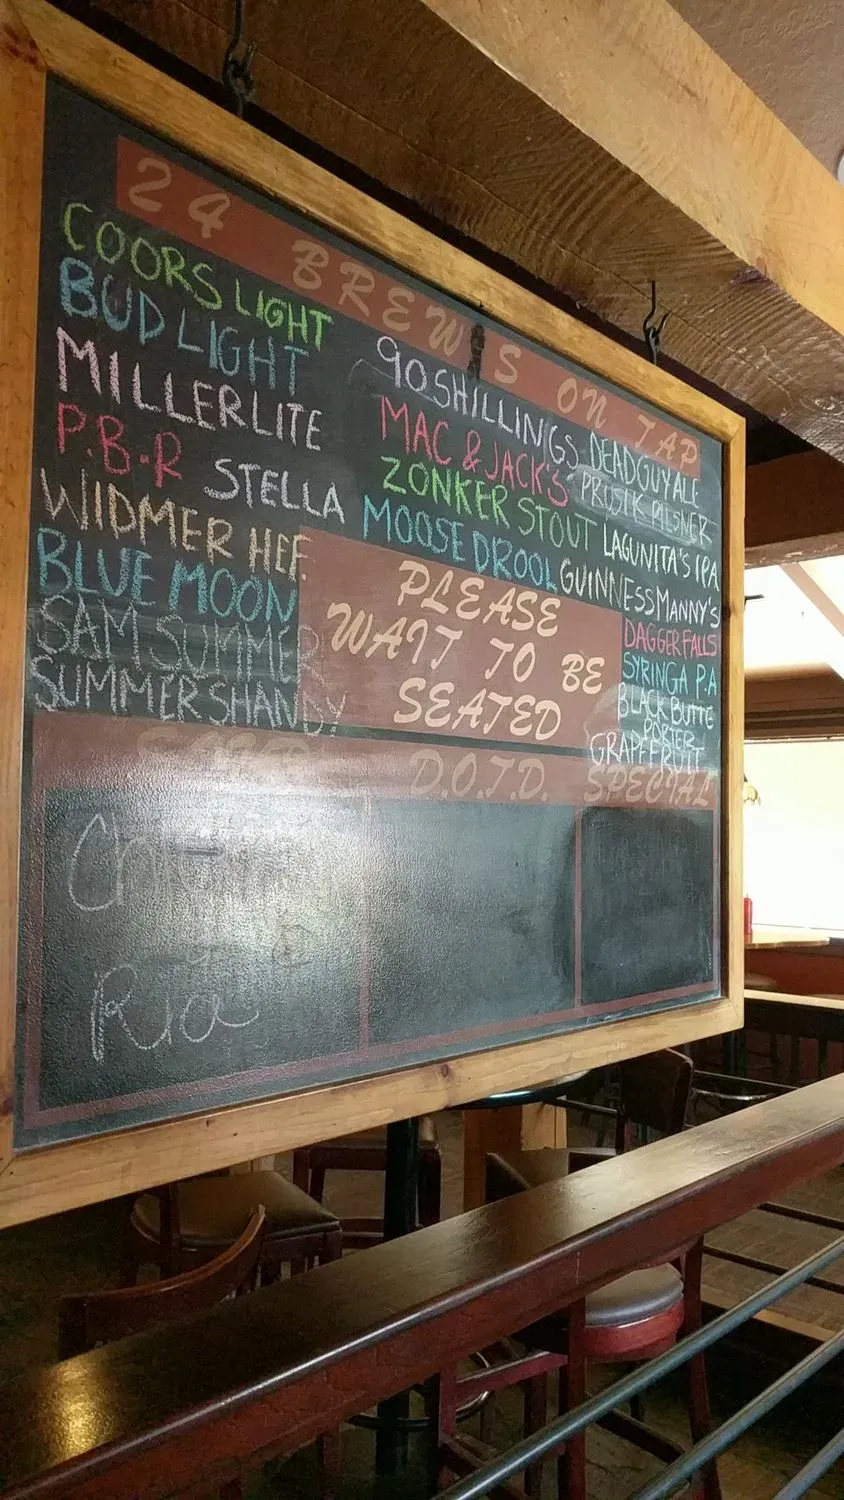 24 BREW'S ON TAP
COORS LIGHT
BUD LIGHT
MILLER LITE
P.B.R STELLA
WIDMER HEF.
BLUE MOON
SAM SUMMER
SUMMER SHANDY
90 SHILLINGS
MAC & JACK'S
ZONKER STOUT
MOOSE DROOL
DEADGUY ALE
PROSIK PILSNER
LAGUNITA'S IPA
GUINNESS MANNY'S
DAGGER FALLS
SYRINGA P.A
BLACK BUTTE
PORTER
GRAPEFRUIT
PLEASE
WAIT TO BE
SEATED
D.O.T.D. SPECIAL